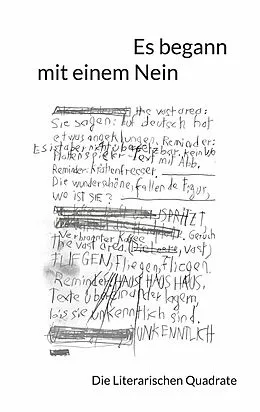 Es begann
mit einem Nein
the vast area:
Sie sagen: auf deutsch hat
etwas angeklungen. Reminder:
Es ist aber nicht übersetzbar, kein Wo
Flötenspieler-Text mit Abb.
Reminder: Krötenfresser.
Die wunderschöne, fallende Figur,
wo ist sie?
USPRATZT
Verbrannter Kaffee Geruch
the vast area (, vast)
FLIEGEN, Fliegen, fliegen
Reminder: HAUS HAUS HAUS,
Texte übereinander lagern,
bis sie unkenntlich sind.
UNKENNTLICH
Die Literarischen Quadrate